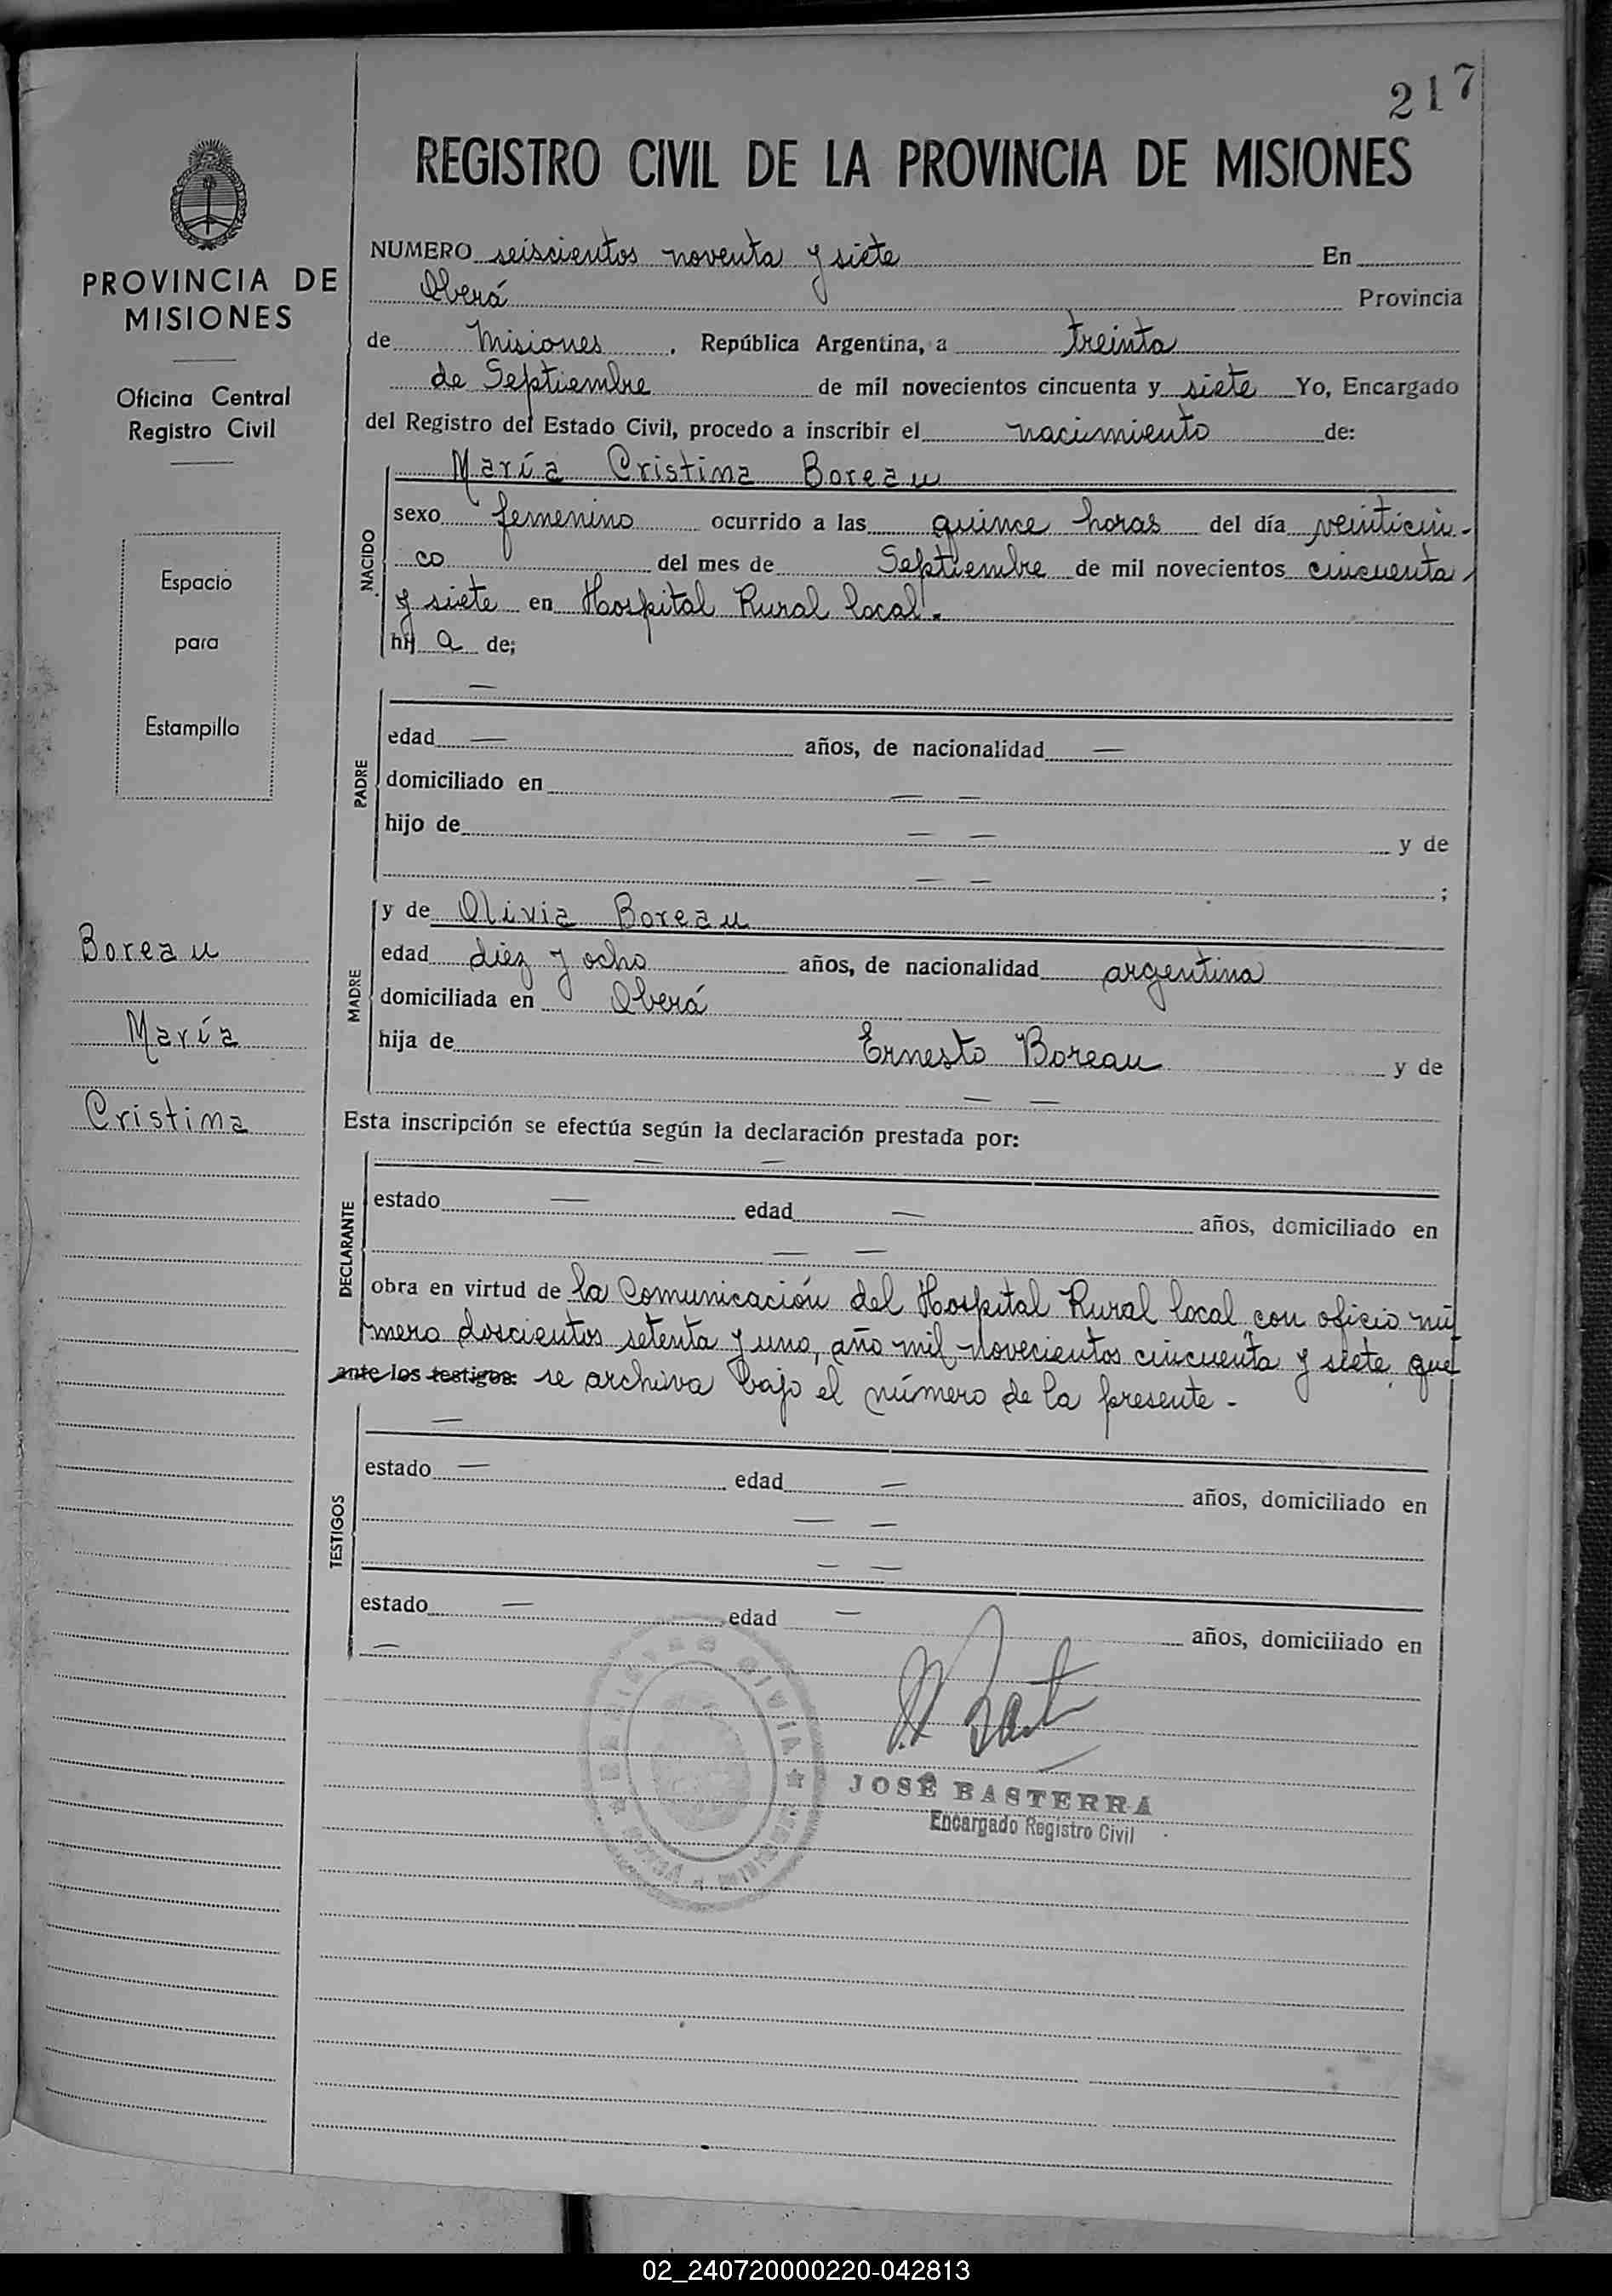 217
REGISTRO CIVIL DE LA PROVINCIA DE MISIONES
PROVINCIA DE
MISIONES
Oficina Central
Registro Civil
Espacio
para
Estampilla
Boreau
María
Cristina
NUMERO seiscientos noventa y siete En
Oberá Provincia
de Misiones, República Argentina, a treinta
de Septiembre de mil novecientos cincuenta y siete Yo, Encargado
del Registro del Estado Civil, procedo a inscribir el nacimiento de:
NACIDO
María Cristina Boreau
sexo femenino ocurrido a las quince horas del día veinticin-
co del mes de Septiembre de mil novecientos cincuenta
y siete en Hospital Rural local.-
hij a de;
PADRE
—
edad — años, de nacionalidad —
domiciliado en — —
hijo de — — y de
— — ;
MADRE
y de Olivia Boreau
edad diez y ocho años, de nacionalidad argentina
domiciliada en Oberá
hija de Ernesto Boreau y de
— —
Esta inscripción se efectúa según la declaración prestada por:
DECLARANTE
— —
estado — edad — años, domiciliado en
— —
obra en virtud de la Comunicación del Hospital Rural local, con oficio nú
mero doscientos setenta y uno, año mil novecientos cincuenta y siete, que
ante los testigos: se archiva bajo el número de la presente -
TESTIGOS
—
estado — edad — años, domiciliado en
— —
— —
estado — edad — años, domiciliado en
—
JOSÉ BASTERRA
Encargado Registro Civil
02_240720000220-042813